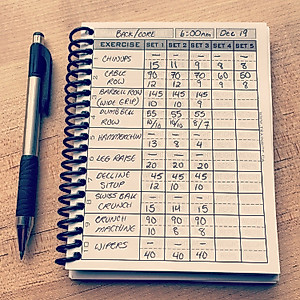 BACK/CORE 6:00AM DEC 19
EXERCISE SET 1 SET 2 SET 3 SET 4 SET 5
1 CHINUPS — — — — —
15 11 9 8 8
2 CABLE 70 70 70 60 50
ROW 12 12 9 9 8
3 BARBELL ROW 145 145 145
(WIDE GRIP) 10 10 9
4 DUMBELL 55 55 55
ROW 10/10 10/10 8/7
HAMMERCHIN — — —
13 8 4
LEG RAISE — — —
20 20 20
DECLINE 45 45 45
SITUP 12 10 10
SWISS BALL — — —
CRUNCH 15 14 15
9 CRUNCH 90 90 90
MACHINE 10 8 8
10 WIPERS — — —
40 40 40